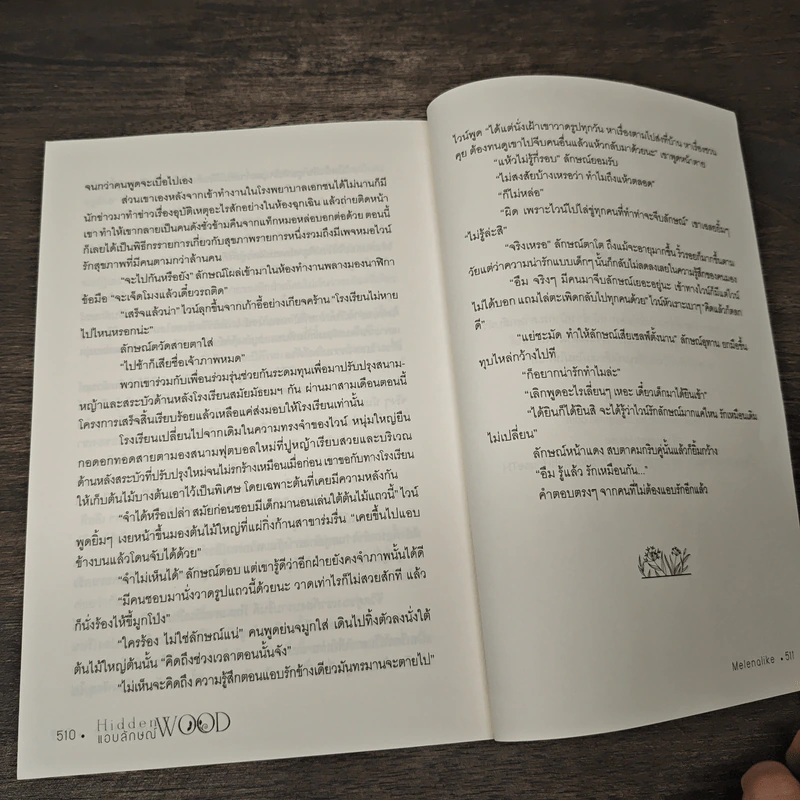 จนกว่าคนพูดจะเบื่อไปเอง
ส่วนเขาเองหลังจากเข้าทำงานในโรงพยาบาลเอกชนได้ไม่นานก็มี
นักข่าวมาทำข่าวเรื่องอุบัติเหตุอะไรสักอย่างในห้องฉุกเฉิน แล้วถ่ายติดหน้า
เขา ทำให้เขากลายเป็นคนดังชั่วข้ามคืนจากแท็กหมอหล่อบอกต่อด้วย ตอนนี้
ก็เลยได้เป็นพิธีกรรายการเกี่ยวกับสุขภาพรายการหนึ่งรวมถึงมีเพจหมอไวน์
รักสุขภาพที่มีคนตามกว่าล้านคน
“จะไปกันหรือยัง” ลักษณ์โผล่เข้ามาในห้องทำงานพลางมองนาฬิกา
ข้อมือ “จะเจ็ดโมงแล้วเดี๋ยวรถติด”
“เสร็จแล้วน่า” ไวน์ลุกขึ้นจากเก้าอี้อย่างเกียจคร้าน “โรงเรียนไม่หาย
ไปไหนหรอกน่ะ”
ลักษณ์ตวัดสายตาใส่
“ไปช้าก็เสียชื่อเจ้าภาพหมด”
พวกเขาร่วมกับเพื่อนร่วมรุ่นช่วยกันระดมทุนเพื่อมาปรับปรุงสนาม-
หญ้าและสระบัวด้านหลังโรงเรียนสมัยมัธยมฯ กัน ผ่านมาสามเดือนตอนนี้
โครงการเสร็จสิ้นเรียบร้อยแล้วเหลือแค่ส่งมอบให้โรงเรียนเท่านั้น
โรงเรียนเปลี่ยนไปจากเดิมในความทรงจำของไวน์ หนุ่มใหญ่ยืน
กอดอกทอดสายตามองสนามฟุตบอลใหม่ที่ปูหญ้าเรียบสวยและบริเวณ
ด้านหลังสระบัวที่ปรับปรุงใหม่จนไม่รกร้างเหมือนเมื่อก่อน เขาขอกับทางโรงเรียน
ให้เก็บต้นไม้บางต้นเอาไว้เป็นพิเศษ โดยเฉพาะต้นที่เคยมีความหลังกัน
“จำได้หรือเปล่า สมัยก่อนชอบมีเด็กมานอนเล่นใต้ต้นไม้แถวนี้” ไวน์
พูดยิ้มๆ เงยหน้าขึ้นมองต้นไม้ใหญ่ที่แผ่กิ่งก้านสาขาร่มรื่น “เคยขึ้นไปแอบ
ข้างบนแล้วโดนจับได้ด้วย”
“จำไม่เห็นได้” ลักษณ์ตอบ แต่เขารู้ดีว่าอีกฝ่ายยังคงจำภาพนั้นได้ดี
“มีคนชอบมานั่งวาดรูปแถวนี้ด้วยนะ วาดเท่าไรก็ไม่สวยสักที แล้ว
ก็นั่งร้องไห้ขี้มูกโป่ง”
“ใครร้อง ไม่ใช่ลักษณ์แน่” คนพูดย่นจมูกใส่ เดินไปทิ้งตัวลงนั่งใต้
ต้นไม้ใหญ่ต้นนั้น “คิดถึงช่วงเวลาตอนนั้นจัง”
“ไม่เห็นจะคิดถึง ความรู้สึกตอนแอบรักข้างเดียวมันทรมานจะตายไป”
510 • Hidden WOOD
แอบลักษณ์
ไวน์พูด “ได้แต่นั่งเฝ้าเขาวาดรูปทุกวัน หาเรื่องตามไปส่งที่บ้าน หาเรื่องชวน
คุย ต้องทนดูเขาไปจีบคนอื่นแล้วแห้วกลับมาด้วยนะ” เขาพูดหน้าตาย
“แห้วไม่รู้กี่รอบ” ลักษณ์ยอมรับ
“ไม่สงสัยบ้างเหรอว่า ทำไมถึงแห้วตลอด”
“ก็ไม่หล่อ”
“ผิด เพราะไวน์ไปไล่ขู่ทุกคนที่ทำท่าจะจีบลักษณ์” เขาเฉลยยิ้มๆ
“ไม่รู้ล่ะสิ”
“จริงเหรอ” ลักษณ์ตาโต ถึงแม้จะอายุมากขึ้น ริ้วรอยก็มากขึ้นตาม
วัยแต่ว่าความน่ารักแบบเด็กๆ นั้นก็กลับไม่ลดลงเลยในความรู้สึกของคนมอง
“อืม จริงๆ มีคนมาจีบลักษณ์เยอะอยู่นะ เข้าทางไวน์ก็มีแต่ไวน์
ไม่ได้บอก แถมไล่ตะเพิดกลับไปทุกคนด้วย” ไวน์หัวเราะเบาๆ “คิดแล้วก็ตลก
ดี”
“แย่ชะมัด ทำให้ลักษณ์เสียเซลฟ์ตั้งนาน” ลักษณ์อุทาน ยกมือขึ้น
ทุบไหล่กว้างไปที
“ก็อยากน่ารักทำไมล่ะ”
“เลิกพูดอะไรเลี่ยนๆ เหอะ เดี๋ยวเด็กมาได้ยินเข้า”
“ได้ยินก็ได้ยินสิ จะได้รู้ว่าไวน์รักลักษณ์มากแค่ไหน รักเหมือนเดิม
ไม่เปลี่ยน”
ลักษณ์หน้าแดง สบตาคมกริบคู่นั้นแล้วก็ยิ้มกว้าง
“อืม รู้แล้ว รักเหมือนกัน...”
คำตอบตรงๆ จากคนที่ไม่ต้องแอบรักอีกแล้ว
Melenalike • 511